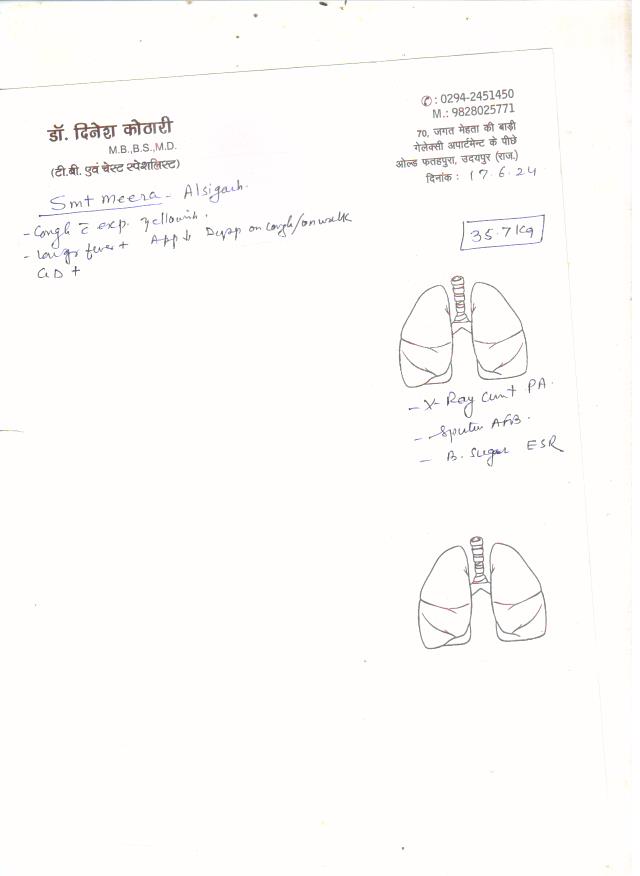 डॉ. दिनेश कोठारी
M.B.,B.S.,M.D.
(टी.बी. एवं चेस्ट स्पेशलिस्ट)
✆ : 0294-2451450
M.: 9828025771
70, जगत मेहता की बाड़ी
गेलेक्सी अपार्टमेन्ट के पीछे
ओल्ड फतहपुरा, उदयपुर (राज.)
दिनांक : 17.6.24
Smt Meera - Alsigarh.
- Cough c̄ exp. yellowish.
- fever + App ↓ Dysp on cough/on walk
+
35.7 Kg
- X-Ray PA.
- Sputum AFB.
- B. Sugar ESR